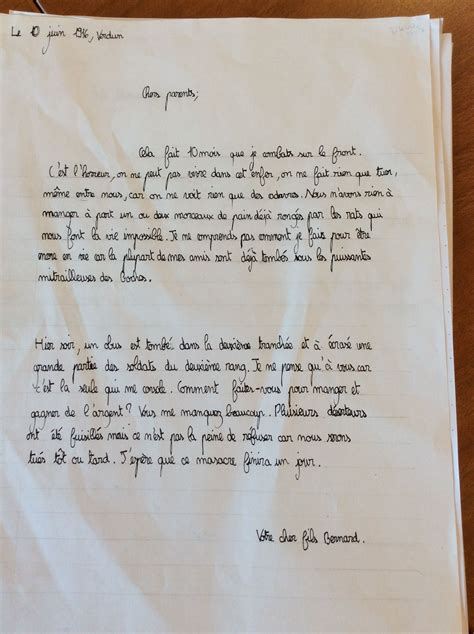 Le 10 juin 1916, Verdun
Chers parents,
Cela fait 10 mois que je combats sur le front.
C'est l'horreur, on ne peut pas vivre dans cet enfer, on ne fait rien que tuer,
même entre nous, car on ne voit rien que des cadavres. Nous n'avons rien à
manger à part un ou deux morceaux de pain déjà rongés par les rats qui
nous font la vie impossible. Je ne comprends pas comment je fais pour être
encore en vie car la plupart de mes amis sont déjà tombés sous les puissantes
mitrailleuses des Boches.
Hier soir, un obus est tombé dans la deuxième tranchée et à écrasé une
grande partie des soldats du deuxième rang. Je ne pense qu'à vous car
c'est la seule qui me console. Comment faites-vous pour manger et
gagner de l'argent? Vous me manquez beaucoup. Plusieurs déserteurs
ont été fusillés mais ce n'est pas la peine de refuser car nous serons
tués tôt ou tard. J'espère que ce masacre finira un jour.
Votre cher fils Bernard.